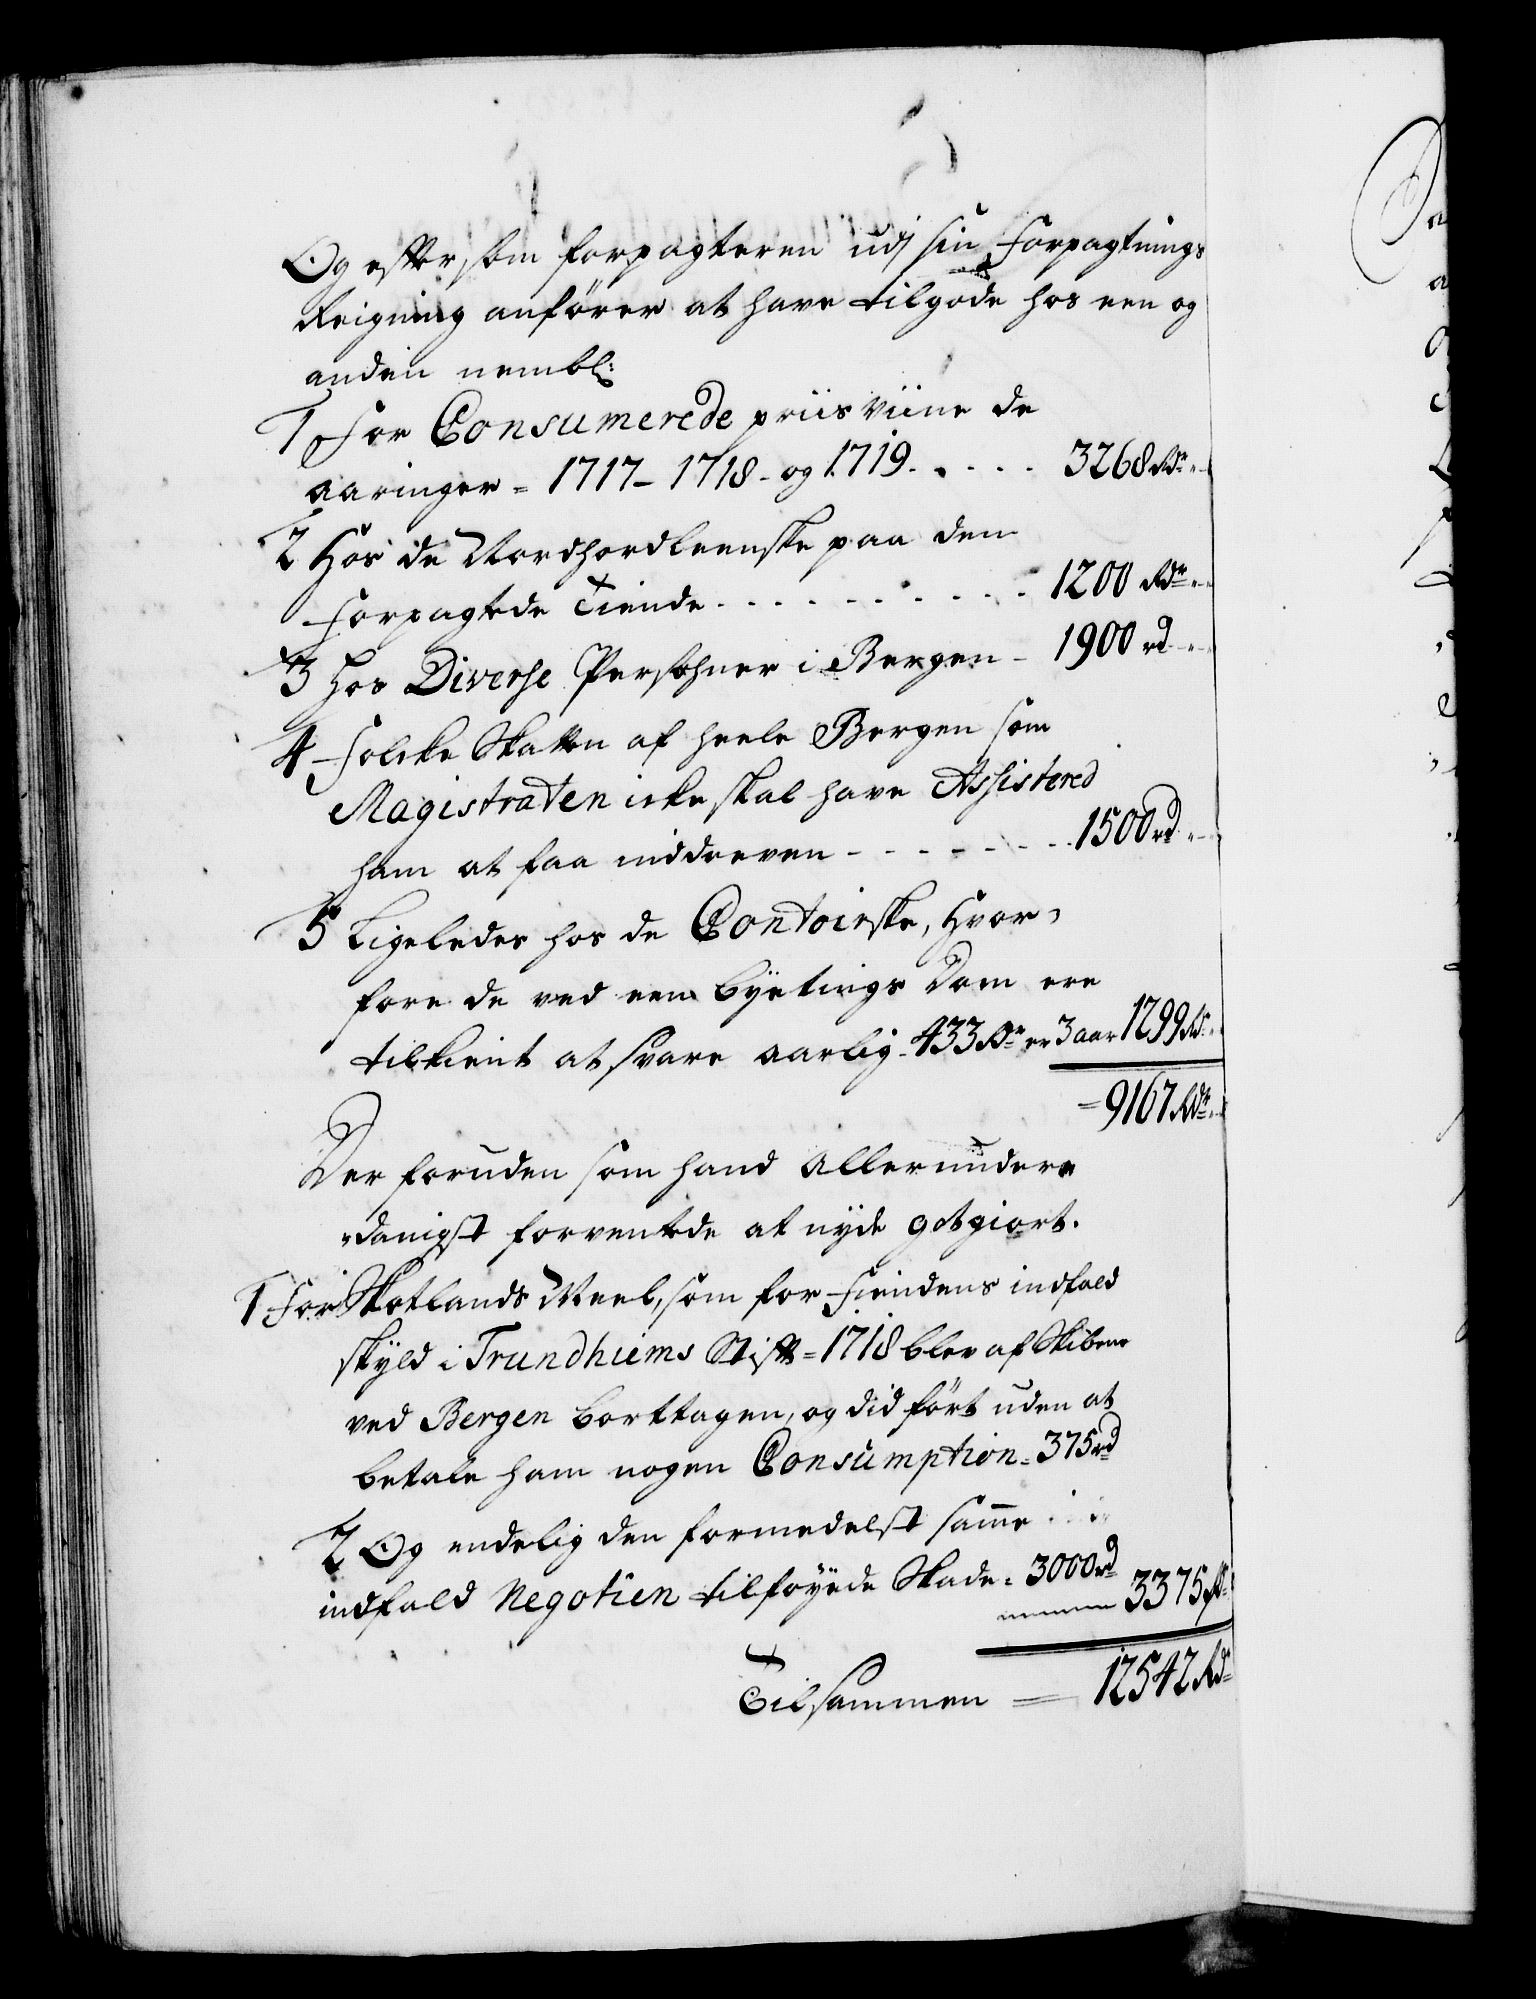 Og effter som forpagteren udj sin forpagtnings
Reigning anfører at have tilgode hos een og
anden nembl:
1 For Consumerede priis Viine de
aaringer = 1717 - 1718 - og 1719. . . . . 3268 Rdr
2 Hos de Nordhordleenske paa den
forpagtede Tiende . . . . . . . . . . 1200 Rdr
3 Hos Diverse Persohner i Bergen - 1900 rd
4 Folcke Skatten af heele Bergen som
Magistraten icke skal have Assistered
ham at faa inddreven - - - - - - - 1500 rd
5 Ligeledes hos de Contoirske, hvor-
fore de ved een byetings Dom ere
tilkient at svare aarlig - 433 Rdr er 3 aar 1299 Rdr
= 9167 Rdr
Der foruden som hand Allerunder-
danigst forventede at nyde gotgiort.
1 For Skotlands Meel, som for Fiendens indfald
skyld i Trundhiems Stift = 1718 blev af Skibene
ved Bergen borttagen, og did ført uden at
betale ham nogen Consumption = 375 rd
2 Og endelig den formedelst samme
indfald Negotien tilføyede Skade = 3000 rd 3375 Rd
Tilsammen = 12542 Rdr